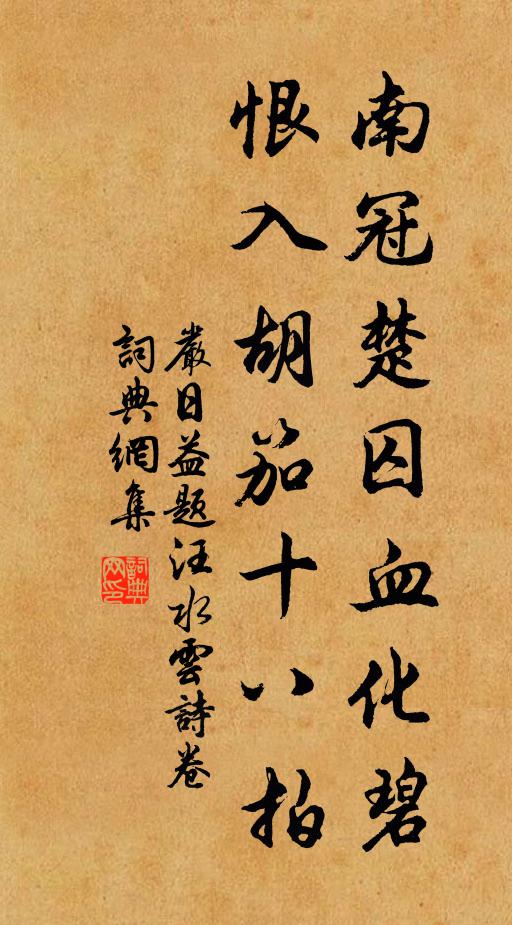 南冠楚囚血化碧
恨入胡笳十八拍
嚴日益題汪水雲詩卷
詞典網集
詞典网印